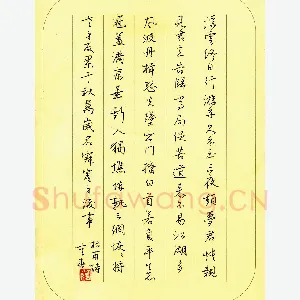 浮雲终日行游子久不至三夜频夢君情親
見君意告歸常局促苦道来不易江湖多
風波舟楫恐失墜出门搔白首若负平生志
冠蓋满京華斯人独憔悴孰云網恢恢将
老身反累千秋萬歲名寂寞身後事
杜甫詩
Shufawang.CN